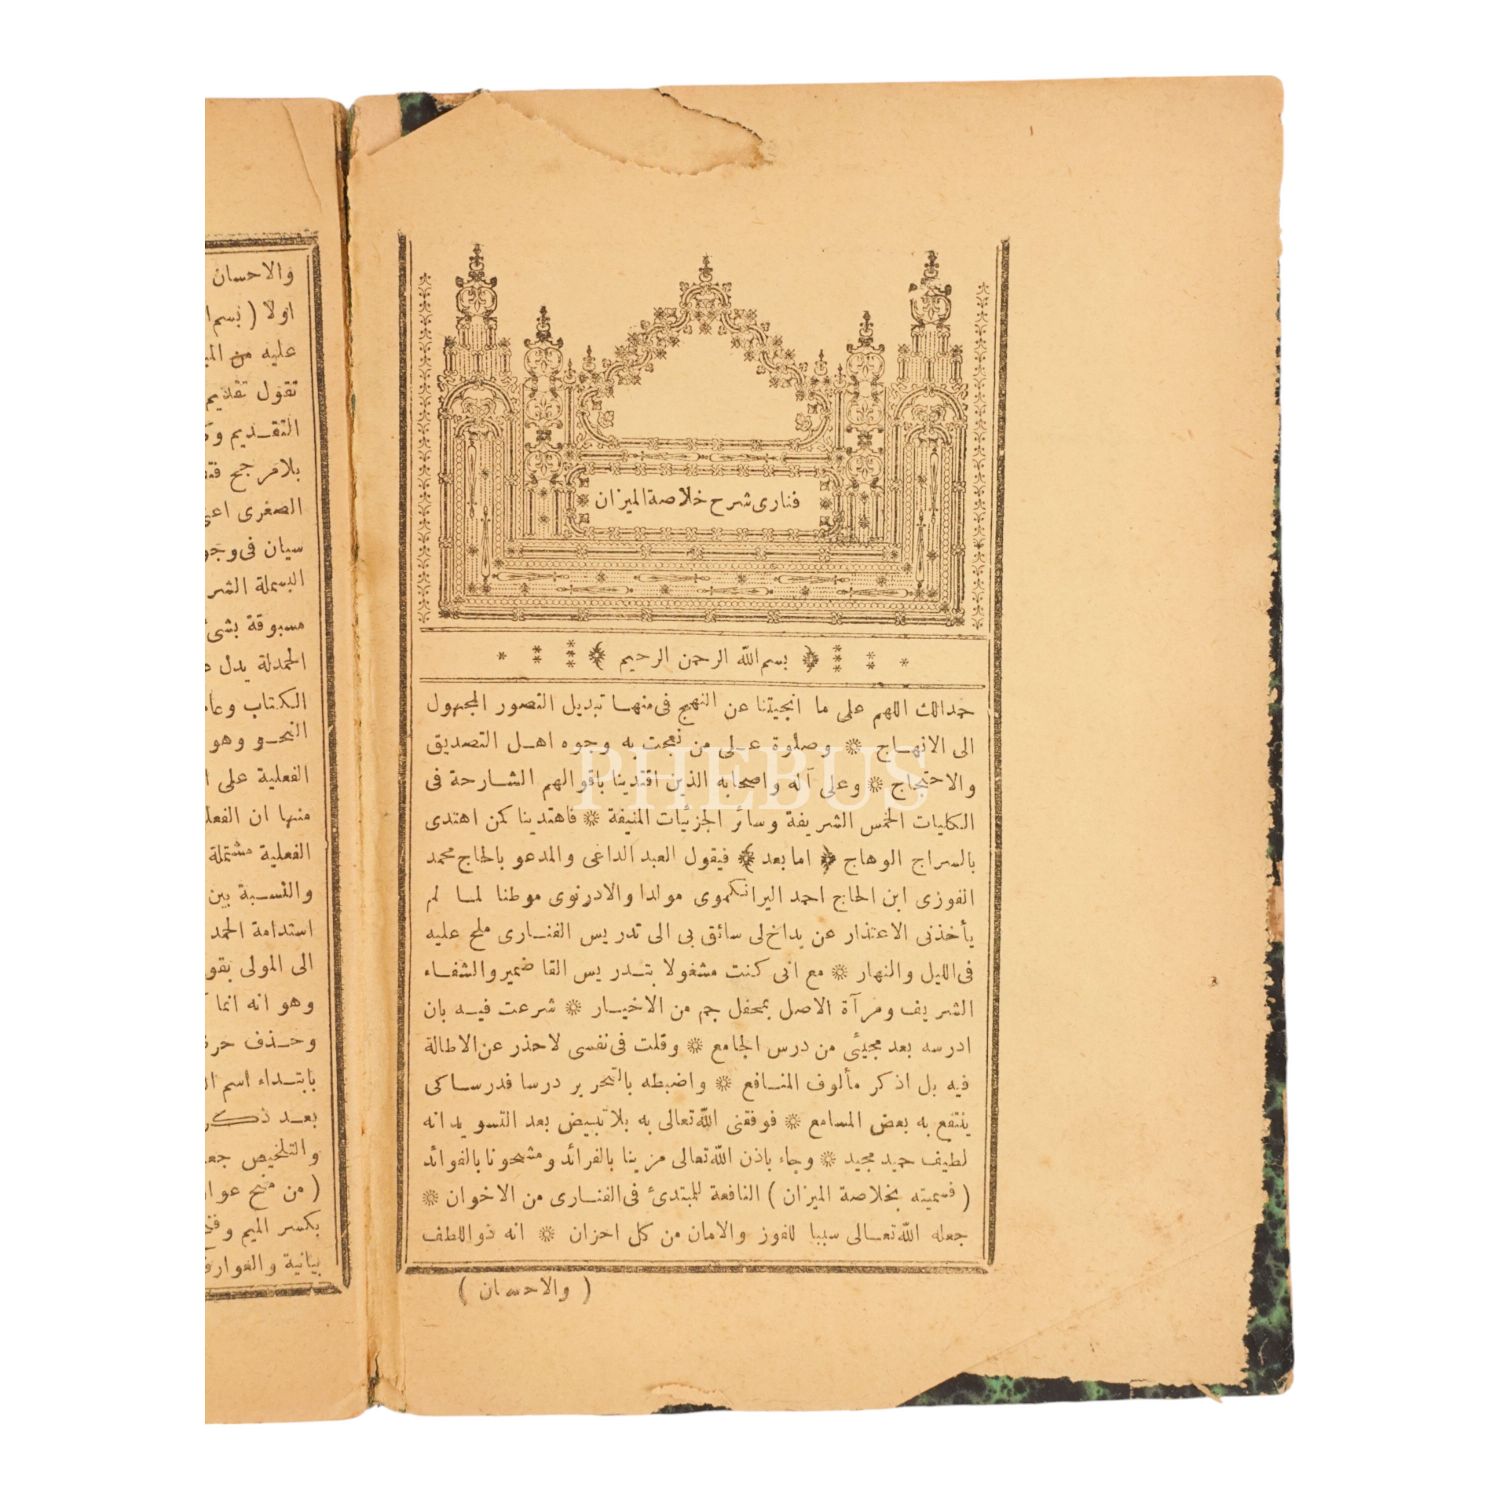 فنارى شرح خلاصة الميزان
بسم الله الرحمن الرحيم
حمدالك اللهم على ما انجيتنا عن النهج فى منهـا تبديل التصور المجهول
الى الانهـاج * وصلوة عـلى من نعجت به وجوه اهـل التصديق
والاحتجاج * وعلى آله واصحابه الذين اقتدينا باقوالهم الشارحة فى
الكليات الخمس الشريفة وسائر الجزئيات المنيفة * فاهتدينا كمن اهتدى
بالسراج الوهاج ﴿ اما بعد ﴾ فيقول العبد الداعى والمدعو بالحاج محمد
الفوزى ابن الحاج احمد اليرانكموى مولدا والادرنوى موطنا لمـا لم
يأخذنى الاعتذار عن يداخ لى سائق بى الى تدريس الفنـارى ملح عليه
فى الليل والنهار * مع انى كنت مشغولا بتـدريس القاضمير والشفـاء
الشريف ومرآة الاصل بمحفل جم من الاخيـار * شرعت فيـه بان
ادرسه بعد مجيئى من درس الجامع * وقلت فى نفسى لاحذر عن الاطالة
فيه بل اذكر مألوف المنـافع * واضبطه بالتحرير درسا فدرسا كى
ينتفع به بعض المسامع * فوفقنى الله تعالى به بلا تبييض بعد التسويد انه
لطيف حميد مجيد * وجاء باذن الله تعالى مزينا بالفرائد ومشحونا بالفوائد
( فسميته بخلاصة الميزان ) النافعة للمبتدئ فى الفنـارى من الاخوان *
جعله الله تعـالى سببا للفوز والامان من كل احزان * انه ذو اللطف
( والاحسان )
والاحسان
اولا ( بسم
عليه من
تقول تقديم
التقـديم
بلا مرجح
الصغرى
سيان فى
البسملة
مسبوقة بشئ
الحمدلة يدل
الكتاب
النحـو وهو
الفعلية على
منها ان
الفعلية مشتملة
والنسـبة بين
استدامة الحمد
الى المولى
وهو انه انما
وحـذف
بابتـداء اسم
بعـد
والتلخيص
( من منح
بكسر الميم
بيانية
PHEBUS